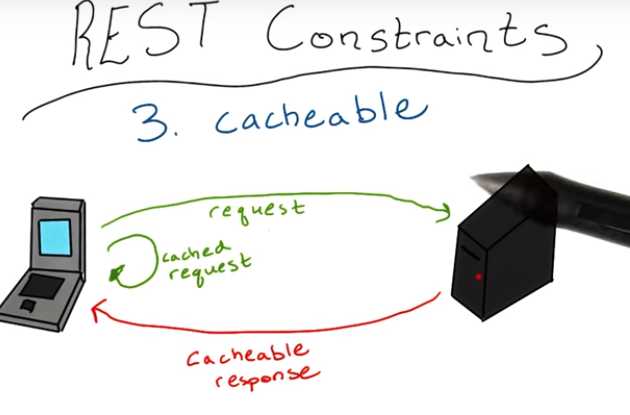 REST Constraints
3. cacheable
request
cached
request
Cacheable
response